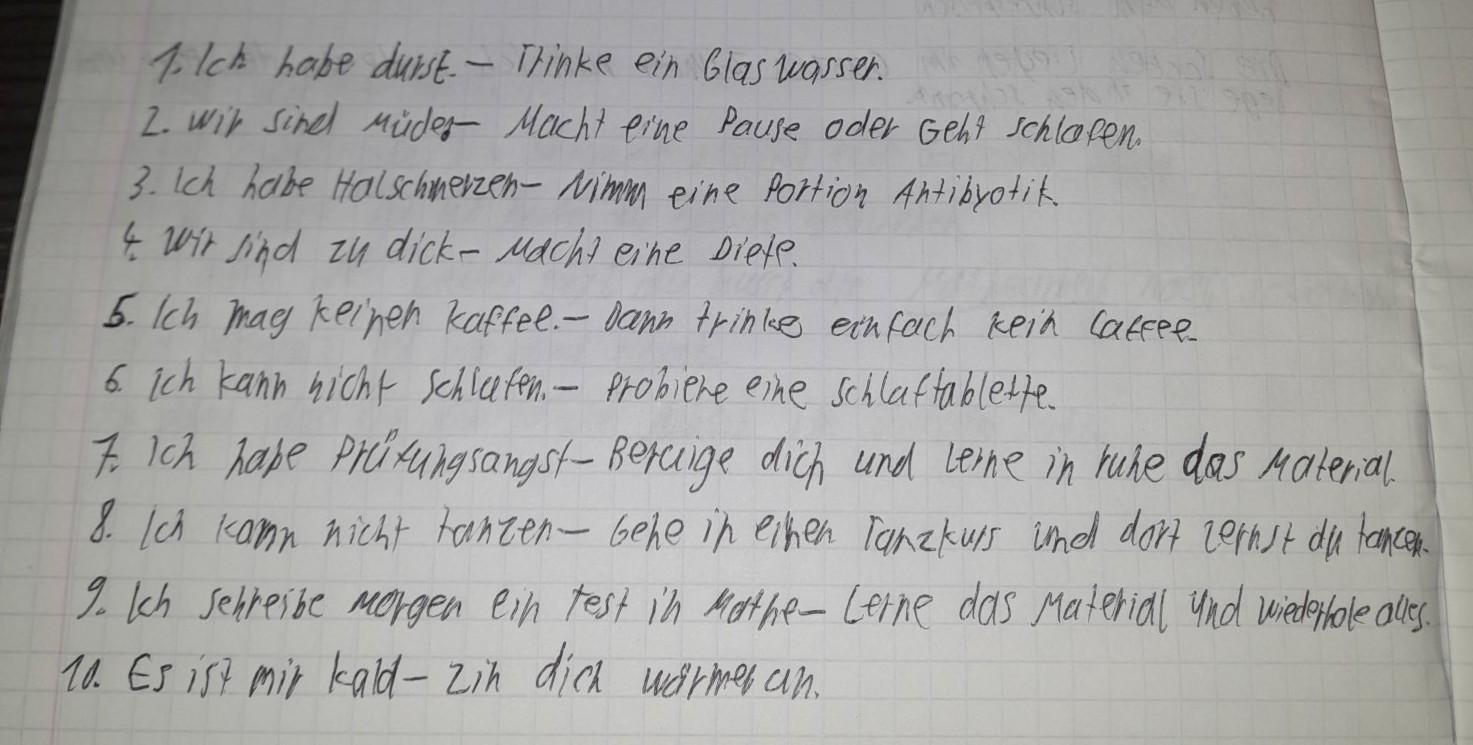 1. Ich habe durst. – Trinke ein Glas wasser.
2. wir sind müde – Macht eine Pause oder Geht schlafen.
3. Ich habe Halschmerzen – Nimm eine Portion Antibyotik.
4. Wir sind zu dick – Macht eine Diete.
5. Ich mag keinen kaffee. – Dann trinke einfach kein Caffee.
6. ich kann nicht schlafen. – probiere eine schlaftablette.
7. Ich habe Prüfungsangst – Beruige dich und lerne in ruhe das Material.
8. Ich kann nicht tanzen – Gehe in einen Tanzkurs und dort lernst du tancen.
9. Ich schreibe morgen ein test in Mathe – Lerne das Material und wiederhole alles.
10. Es ist mir kald – Zih dich wärmer an.